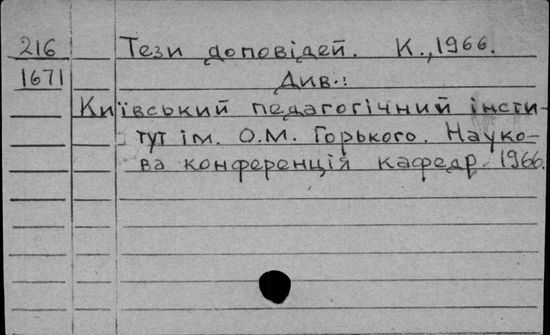 216 Тези доповідей. К., 1966.
1671 Див.:
Київський педагогічний інсти-
тут ім. О.М. Горького. Науко-
ва конференція кафедр. 1966.